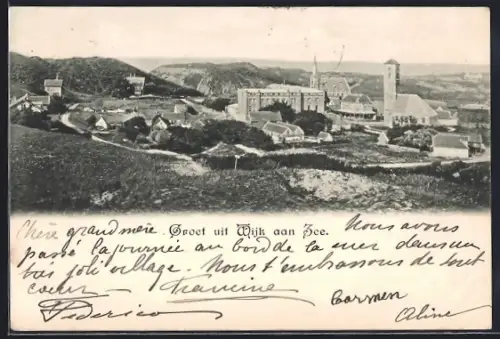 Groet uit Wijk aan Zee.
Chère grand mère
Nous avons
passé la journée au bord de la mer dans un
très joli village. Nous t'embrassons de tout
coeur
Carmen
Federico
Aline